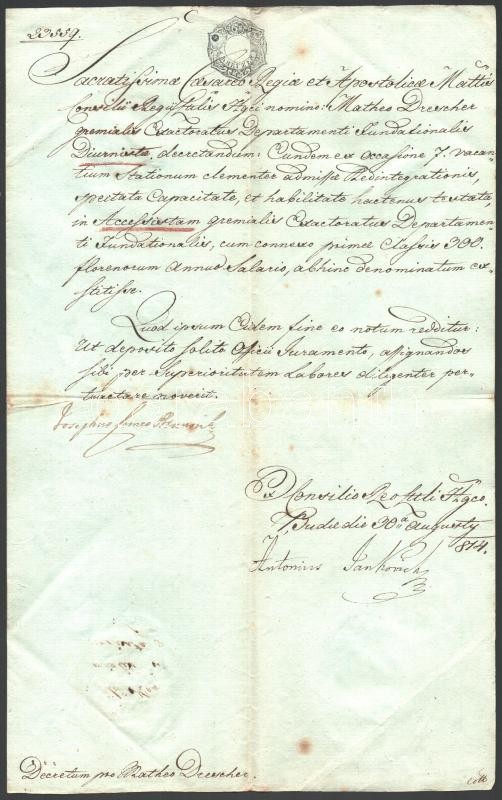 23559.
Sacratissimae Caesareo Regiae et Apostolicae Mattis
Consilii Regii Locumtlis Hgci nomine: Matheo Drescher
gremialis Exactoratus Departamenti Fundationalis
Diurnistae, decretandum: Eundem ex occasione 7. vacan-
tium Stationum clementer admissae Redintegrationis,
spectata Capacitate, et habilitate hactenus testata,
in Accessistam gremialis Exactoratus Departamen-
ti Fundationalis, cum connexo primae Classis 300.
florenorum Annuo Salario, abhinc denominatum ex-
stitisse.
Quod ipsum Eidem fine eo notum redditur:
Ut deposito solito Officii Juramento, assignandos
sibi per Superioritatem Labores diligenter per-
tractare noverit.
Josephus
Ex Consilio Hgco.
Budae die 30a Augusty
1814.
Antonius Jankovich
Decretum pro Matheo Drescher.